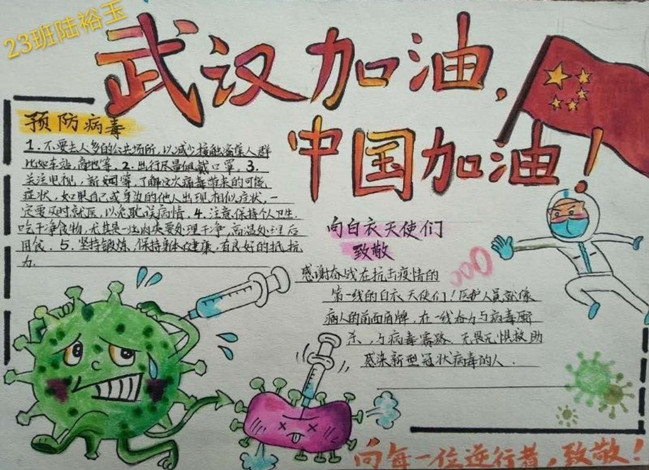 23班陆裕玉
武汉加油,
中国加油!
预防病毒
1.不要去人多的公共场所,以减少接触患病人群
比如车站,商场等.2.出行尽量佩戴口罩.3.
关注电视,新闻等,了解这次病毒带来的可能
症状,如果自己或身边的他人出现相似症状,一
定要及时就医,以免耽误病情.4.注意保持个人卫生.
吃干净食物,尤其是一些肉类要处理干净,高温处理后
再食.5.坚持锻炼,保持身体健康,有良好的抵抗
力.
向白衣天使们
致敬
感谢奋战在抗击疫情的
第一线的白衣天使们!医护人员就像
病人的前面盾牌,在一线奋力与病毒厮
杀,与病毒 无畏无惧救助
感染新型冠状病毒的人.
向每一位逆行者,致敬!